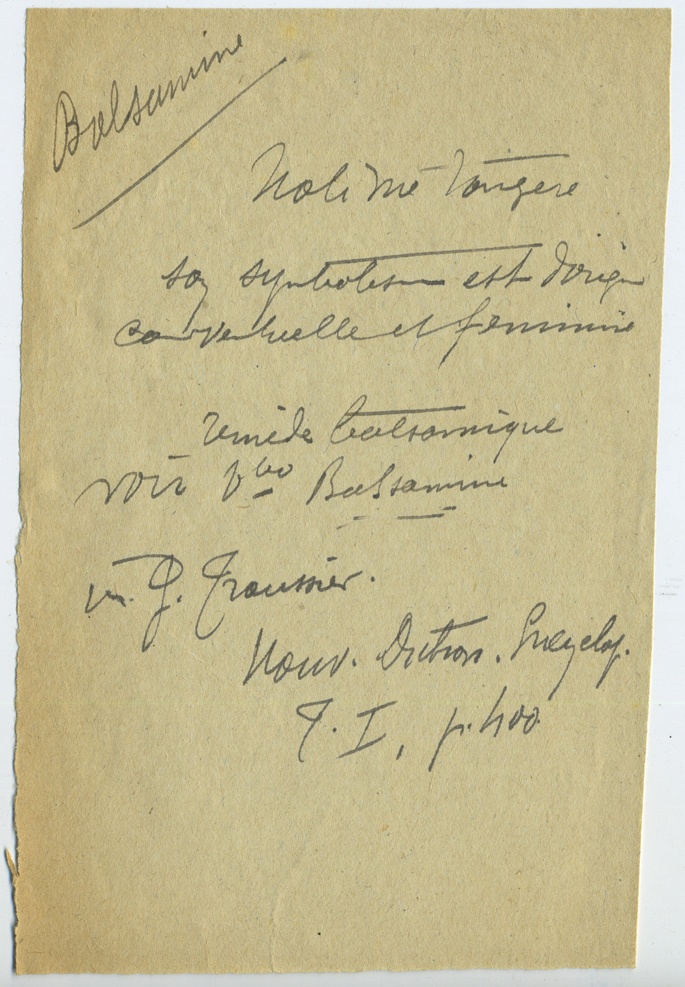 Balsamine
Noli me tangere
son symbolisme est d'origine
conventuelle et féminine
remède balsamique
voir Vbo Balsamine
in. J. Troussier.
Nouv. Diction. Encyclop.
T. I, p. 400